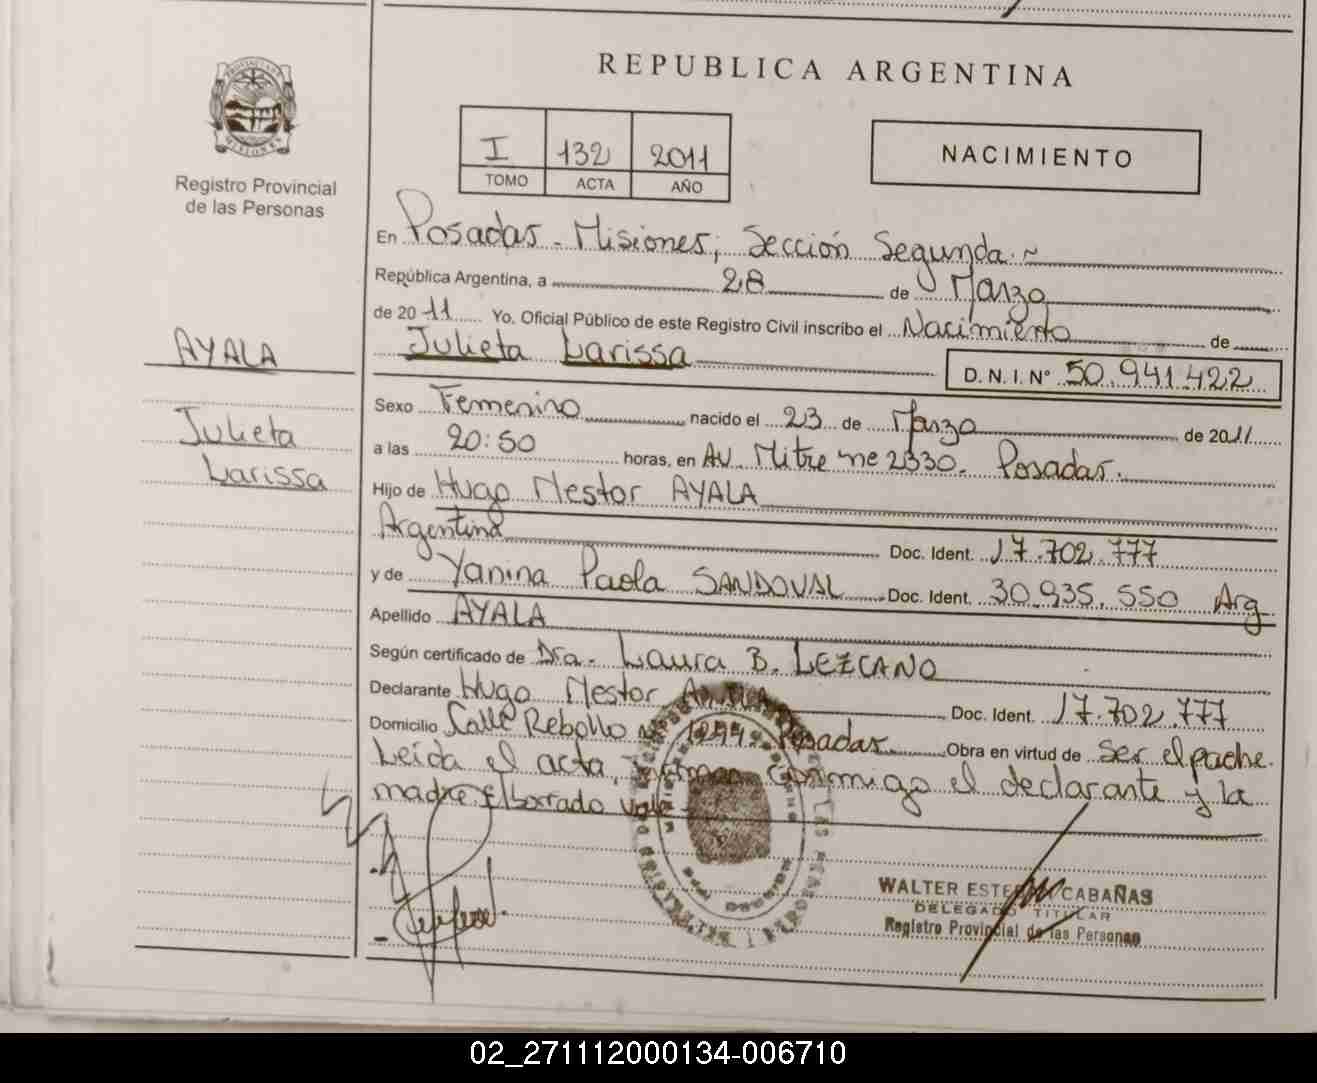 REPUBLICA ARGENTINA
PROVINCIA DE
MISIONES
Registro Provincial
de las Personas
I 132 2011
TOMO ACTA AÑO
NACIMIENTO
En Posadas - Misiones, Sección Segunda.~
República Argentina, a 28 de Marzo
de 2011 Yo. Oficial Público de este Registro Civil inscribo el Nacimiento de
Julieta Larissa D. N. I. Nº 50.941.422
AYALA
Julieta
Larissa
Sexo Femenino nacido el 23 de Marzo de 2011
a las 20:50 horas, en AV. Mitre nº 2330. Posadas.
Hijo de Hugo Nestor AYALA
Argentina Doc. Ident. 17.702.777
y de Yanina Paola SANDOVAL Doc. Ident. 30.935.550 Arg
Apellido AYALA
Según certificado de Dra. Laura B. LEZCANO
Declarante Hugo Nestor AYALA Doc. Ident. 17.702.777
Domicilio Calle Rebollo Posadas Obra en virtud de ser el padre.
Leida el acta, conmigo el declarante y la
madre. El borrado vale
WALTER CABAÑAS
DELEGADO TITULAR
Registro Provincial de las Personas
02_271112000134-006710